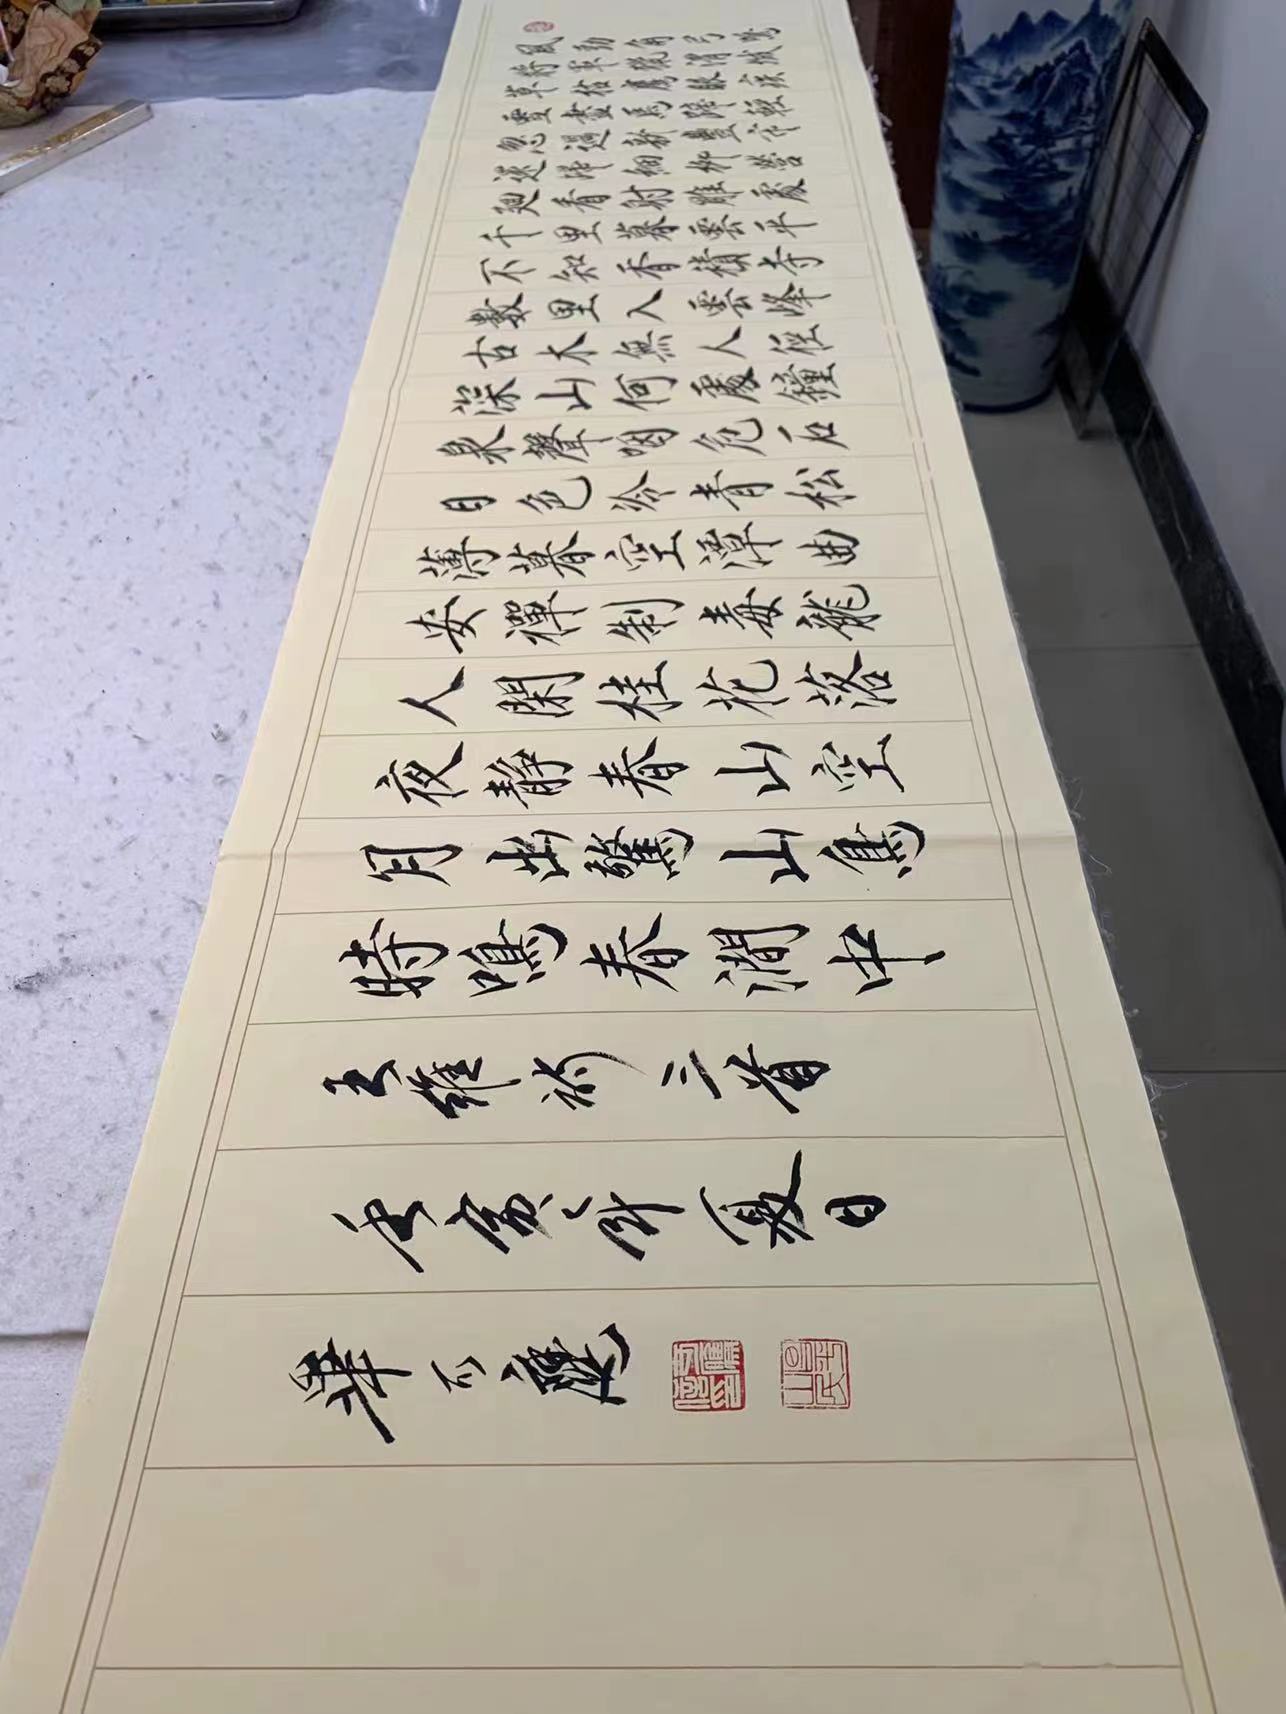 風勁角弓鳴
將軍獵渭城
草枯鷹眼疾
雪盡馬蹄輕
忽過新豐市
還歸細柳營
迴看射雕處
千里暮雲平
不知香積寺
數里入雲峰
古木無人徑
深山何處鐘
泉聲咽危石
日色冷青松
薄暮空潭曲
安禪制毒龍
人閑桂花落
夜靜春山空
月出驚山鳥
時鳴春澗中
王維詩三首
壬寅年夏日